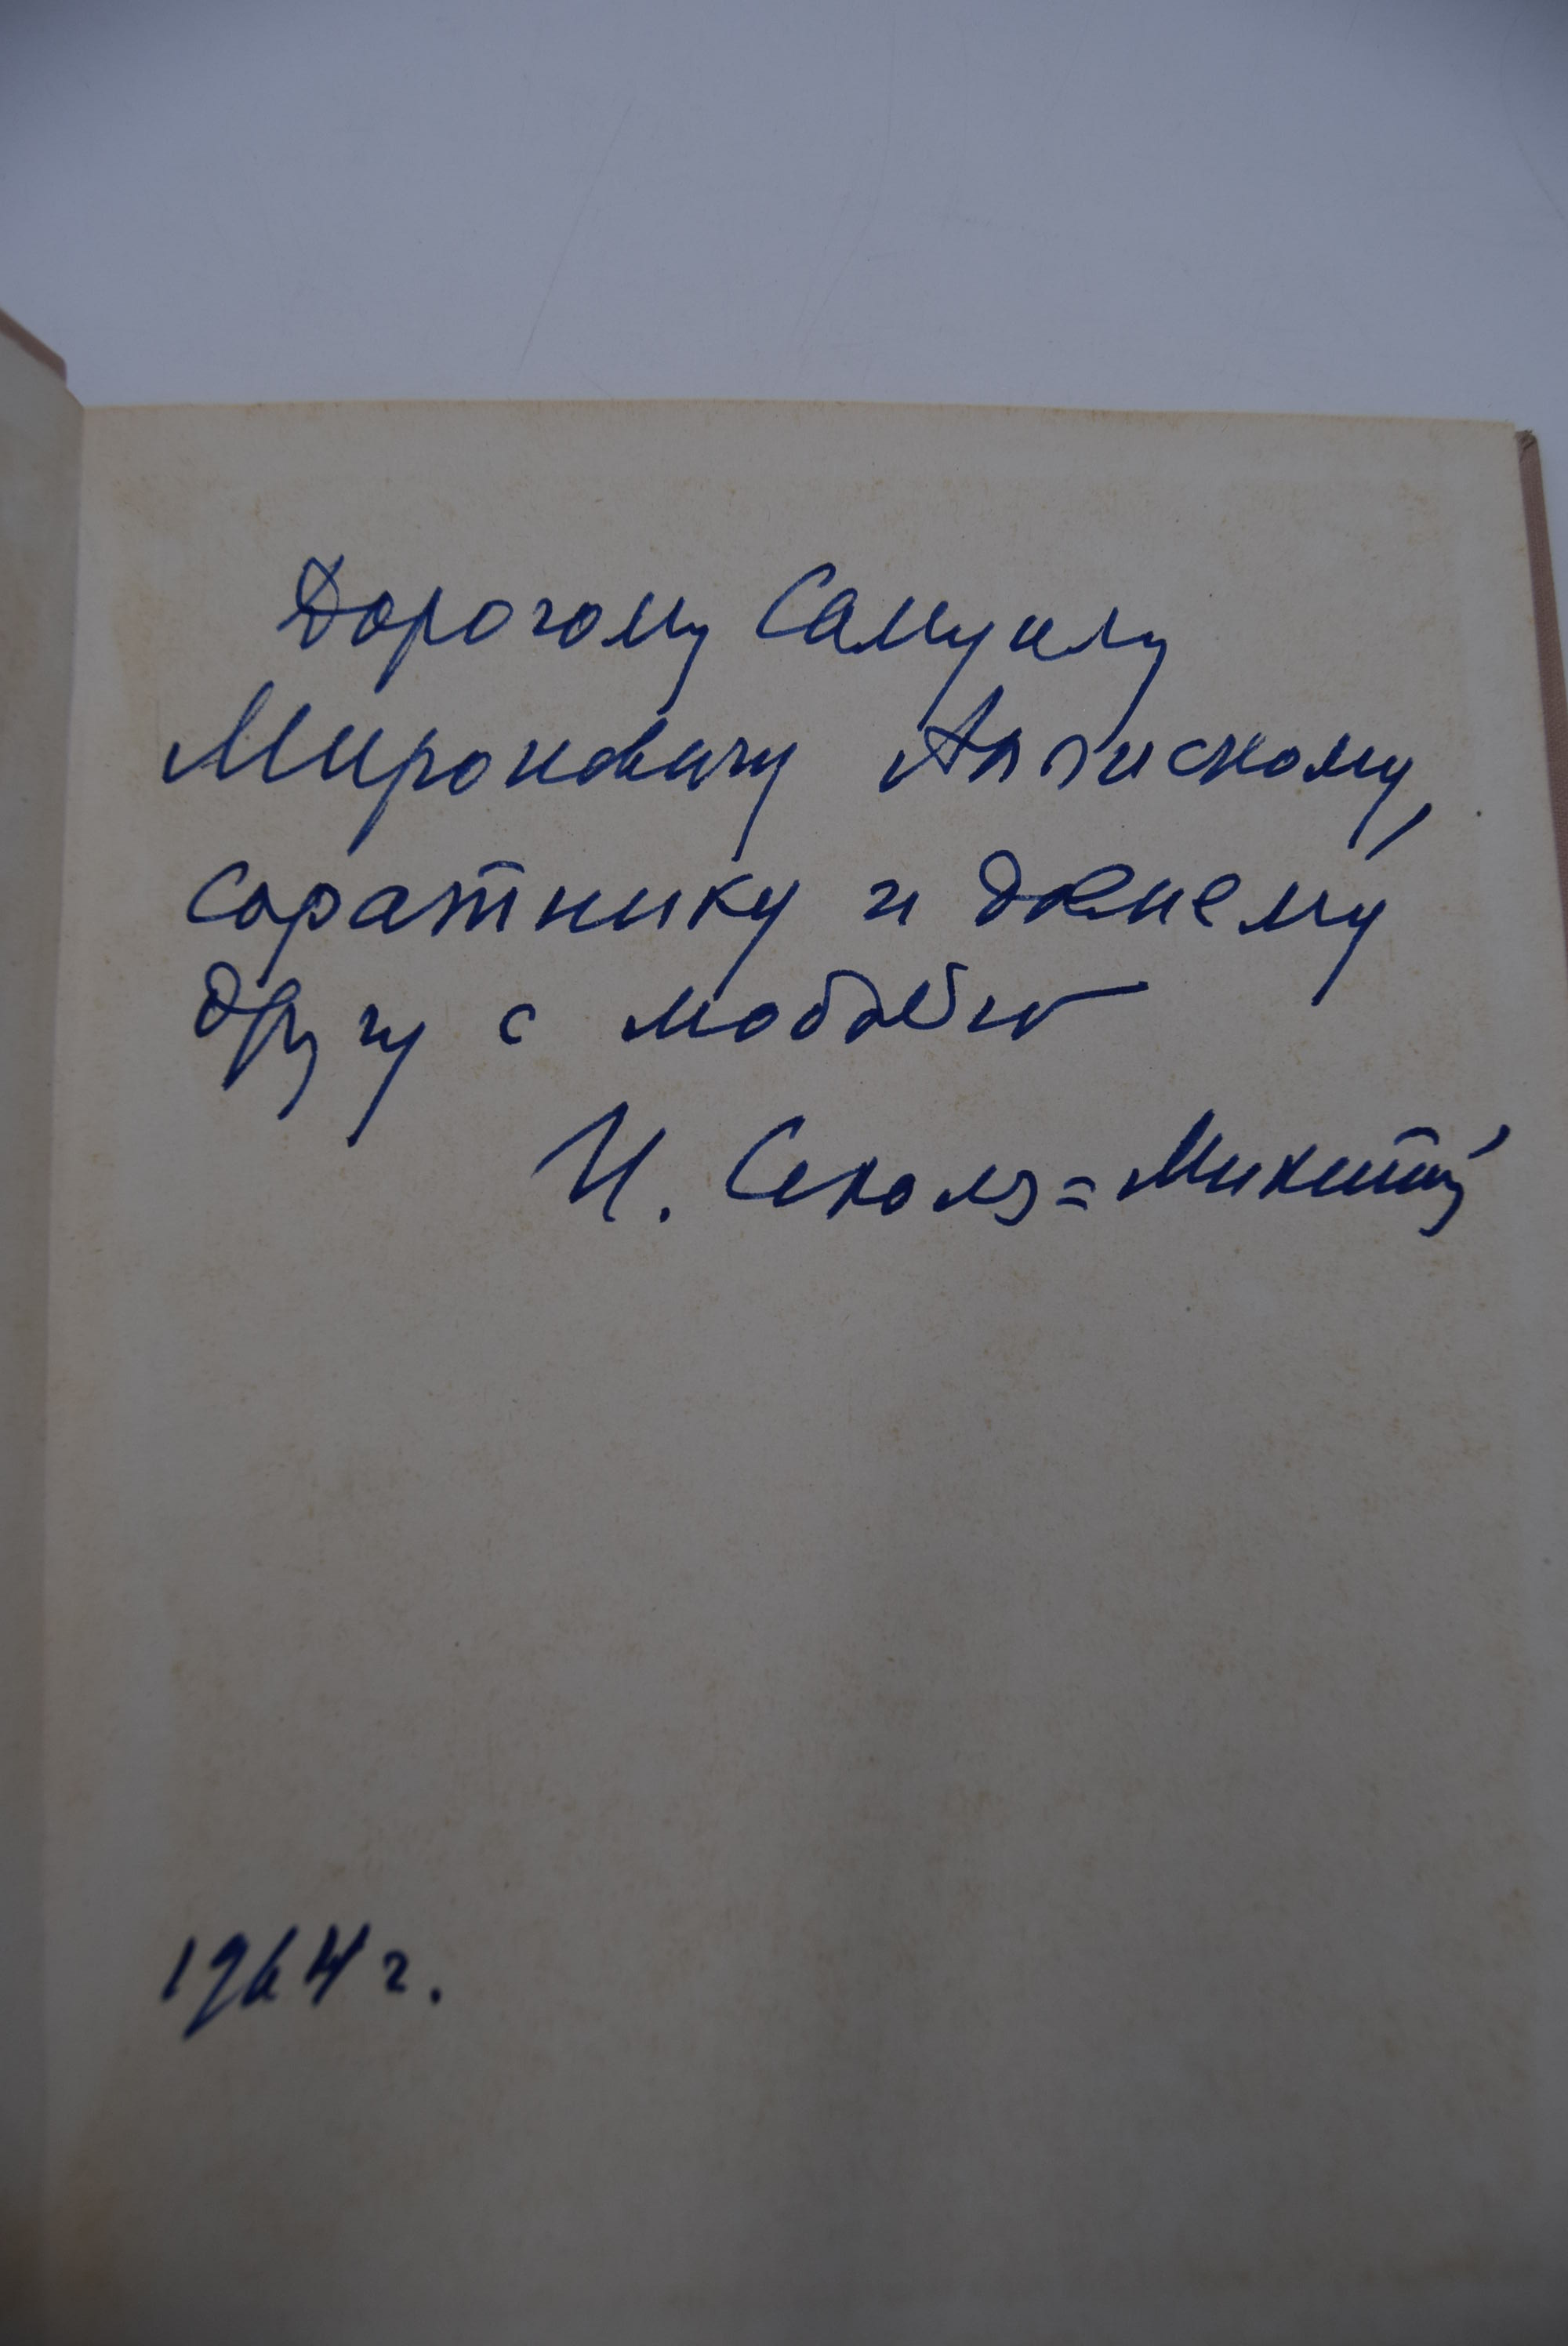 Дорогому Самуилу
Мироновичу Алянскому,
соратнику и давнему
другу с любовью
И. Соколов=Микитов
1964 г.